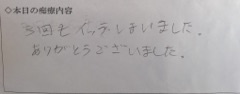 ◇本日の施療内容
3回もイッテしまいました。
ありがとうございました。